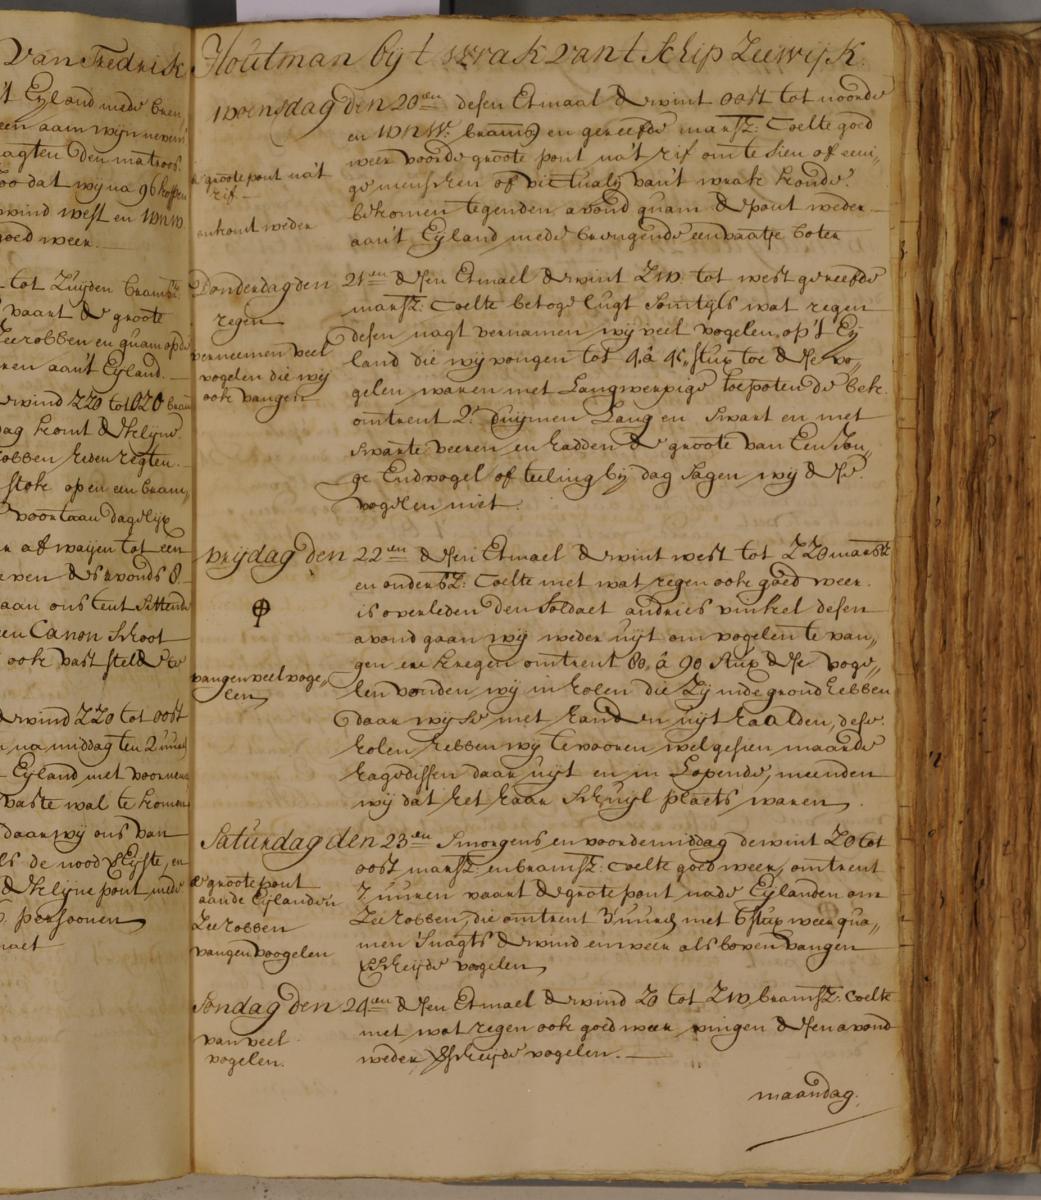 Van Fredrik
't Eyland mede bren„
een aam wijn nevens
aagten den matroos
oo dat wij na 96 koppen
wind west en WNW
goed weer.
tot Zuyden bramsz:
vaart de groote
Zeerobben en quam op de
ren aan't Eyland.
erwind ZZO tot OZO bram
dag komt de klijne
robben heden regten.
stok op en een bram„
voortaan dagelijx
en af waijen tot een
even des avonds 8
aan ons tent sittende
een Canon schoot
ook vast stelde te
de wind ZZO tot oost
na middag ten 2 uuren
Eyland met voorn
vaste wal te komen
daar wij ons van
ls de nood Eyste, en
de klijne pont mede
persoonen
Houtman bij't wrak van't Schip Zeewijk.
woensdag den 20en desen Etmaal de wint oost tot noorde
en WNW: brams en gereefde marsz: Coelte goed
weer voer de groote pont na't rif om te sien of eeni„
de groote pont na't
rif
ge menschen of victualy van't wrak konde
bekomen tegen den avond quam de pont weder
en komt weder
aan't Eyland mede brengende een vaatje boter
Donderdag den 21en desen Etmael de wint ZW: tot west gereefde
marsz: Coelte betoge lugt Somtyls wat regen
regen
desen nagt vernamen wij veel vogelen op't Ey
verneemen veel
vogelen die wij
ook vangen
land die wij vongen tot 4 â 45 stux toe dese vo„
gelen waren met Langwerpige toe poten de bek
omtrent 2 duijmen Lang en swart en met
swarte veeren en hadden de groote van Een Jon„
ge Endvogel of teeling bij dag Sagen wij dese
vogelen niet
vrijdag den 22en desen Etmael de wint west tot ZZO marsz:
en onder sz: Coelte met wat regen ook goed weer
is overleden den Soldaet andries vinkel desen
avond gaan wij weder uijt om vogelen te van„
gen en kregen omtrent 80 â 90 stux dese voge„
vangen veel voge„
len
len vonden wij in holen die Zij in de grond hebben
daar wij se met handen uijt haalden, dese
holen hebben wij te vooren wel gesien maar de
hagedissen daar uijt en in Lopende, meenden
wij dat het haar Schuyl plaets waren
Saturdag den 23en Smorgens en voordemiddag de wint ZO tot
oost marsz: en bramsz: coelte goed weer, omtrent
de groote pont
na de Eylanden
Zeerobben
vangen voogelen
7 uuren vaart de grote pont na de Eylanden om
Zeerobben, die omtrent 3 uuren met 6 stux weer qua„
men 'snagts de wind en weer als boven vangen
verscheijde vogelen
Sondag den 24en desen Etmael de wind ZO tot ZW bramsz: Coelte
met wat regen ook goed weer vingen desen avond
van veel
vogelen.
weder verscheijde vogelen.
maandag.